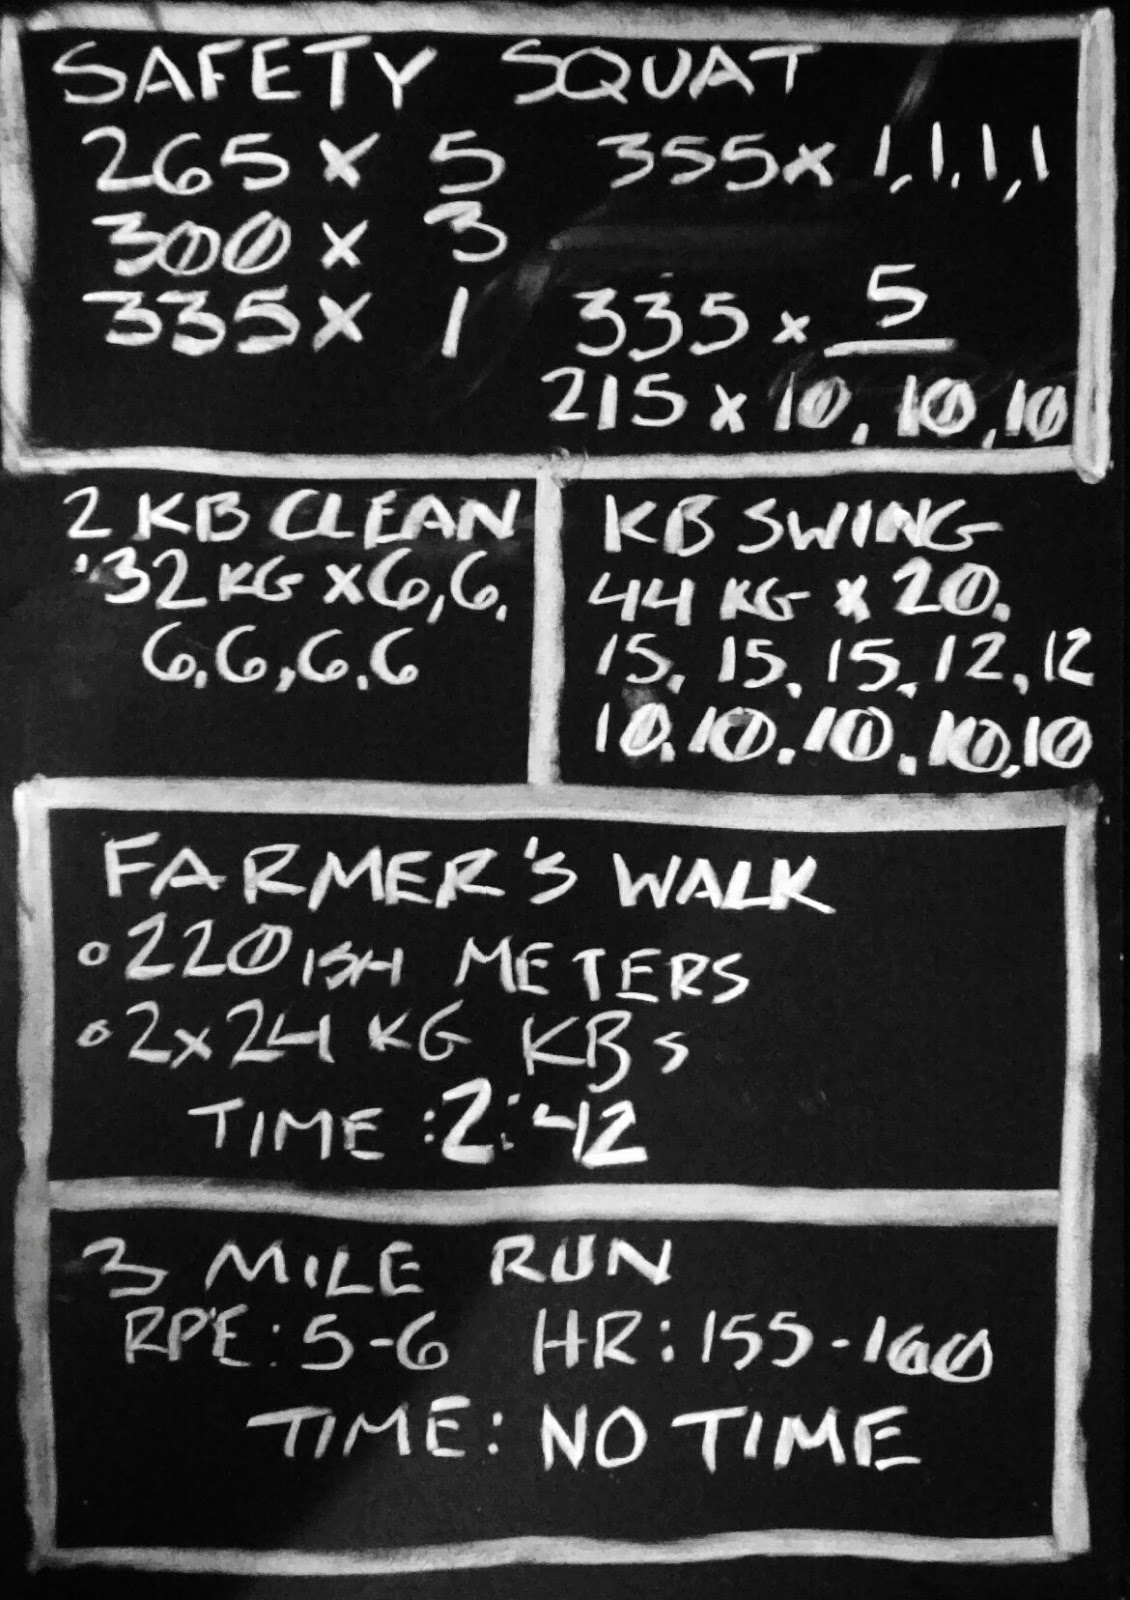 SAFETY SQUAT
265 x 5
300 x 3
335 x 1
355 x 1,1,1,1
335 x 5
215 x 10, 10, 10
2 KB CLEAN
32 KG x 6,6,
6,6,6,6
KB SWING
44 KG x 20,
15, 15, 15, 12, 12
10, 10, 10, 10, 10
FARMER'S WALK
220 ISH METERS
2x24 KG KBs
TIME: 2:42
3 MILE RUN
RPE: 5-6 HR: 155-160
TIME: NO TIME